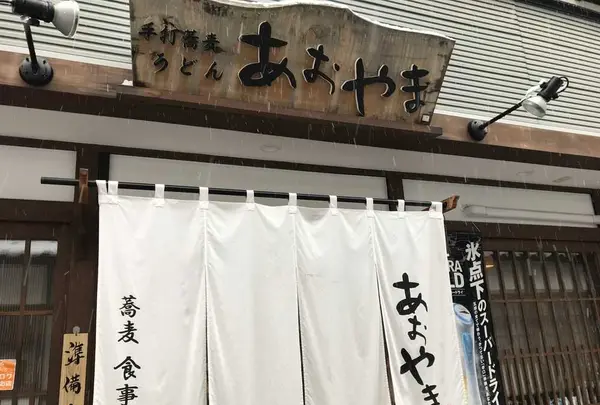 手打蕎麦
うどん
あおやま
蕎麦 食事
あおやま
準備
氷点下のスーパードライ